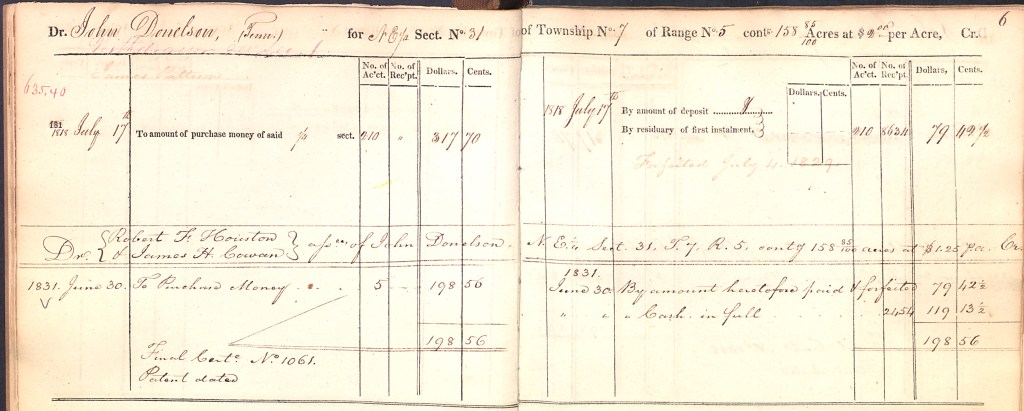 6
Dr. John Donelson, (Tenn.) " for N E ¼ Sect. No. 31 of Township No. 7 of Range No. 5 contg 158 85/100 Acres at $2.00 per Acre, Cr.
635.40
No. of Ac'ct. No. of Rec'pt. Dollars. Cents.
Dollars. Cents. No. of Ac'ct. No. of Rec'pt. Dollars, Cents.
1818 July 17th To amount of purchase money of said ¼ sect. 210 " 317 70
1818 July 17th By amount of deposit
By residuary of first instalment. 210 8634 79 42½
Forfeited July 4. 1829
Dr. { Robert F. Houston
& James H. Cowan } assees of John Donelson. N. E. ¼ Sect. 31. T. 7. R. 5. contg 158 85/100 acres at $1.25 Cr
1831. June 30. To Purchase Money 5 198 56
1831.
June 30. By amount heretofore paid & forfeited 79 42½
" " " Cash in full 2454 119 13½
198 56
198 56
Final Certe. No. 1061.
Patent dated